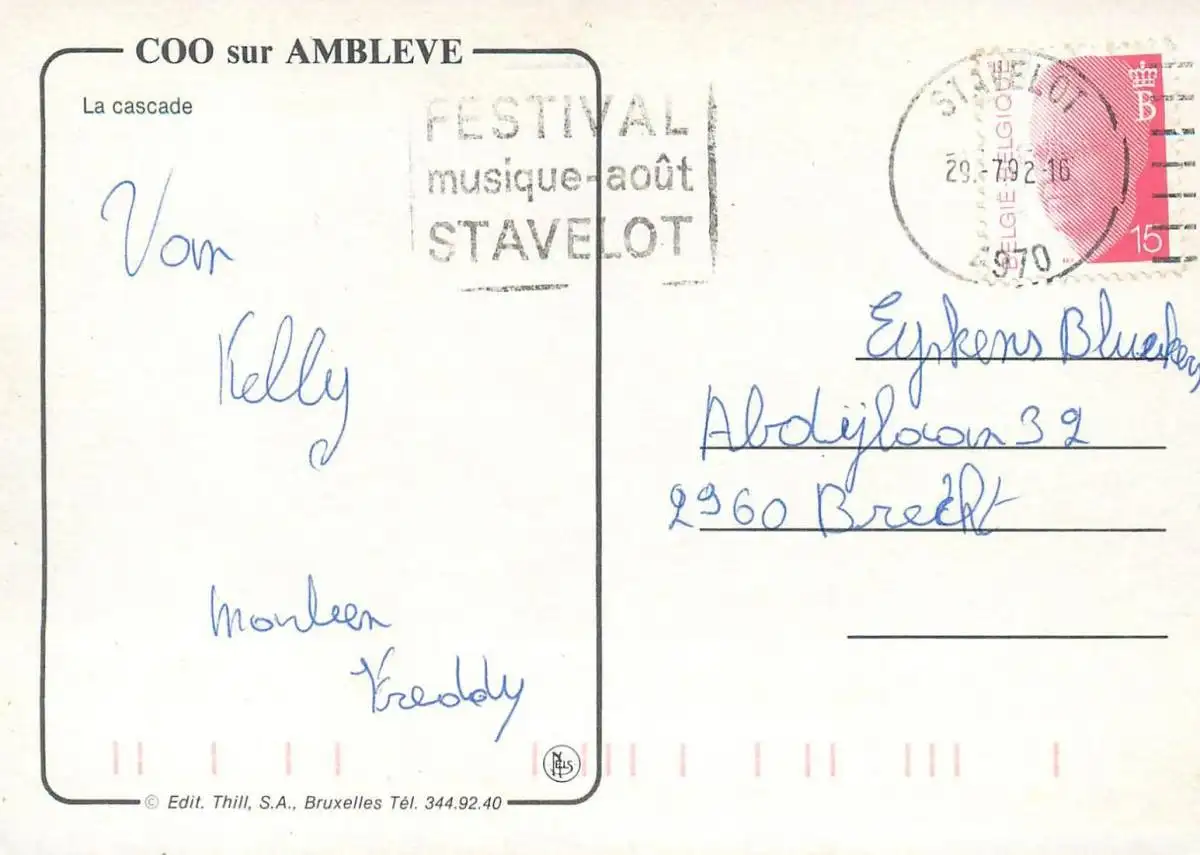 COO sur AMBLEVE
La cascade
FESTIVAL
musique-août
STAVELOT
STAVELOT
29.-7.92-16
4970
BELGIE-BELGIQUE
B
15
Van
Kelly
Freddy
Eyskens
Abdijlaan 32
2960 Brecht
NELS
© Edit. Thill, S.A., Bruxelles Tél. 344.92.40